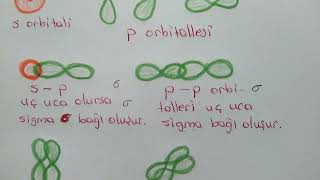 s orbitali
p orbitalleri
s - p σ
uç uca olursa σ
sigma σ bağı oluşur.
p - p orbi- σ
talleri uç uca
sigma bağı oluşur.